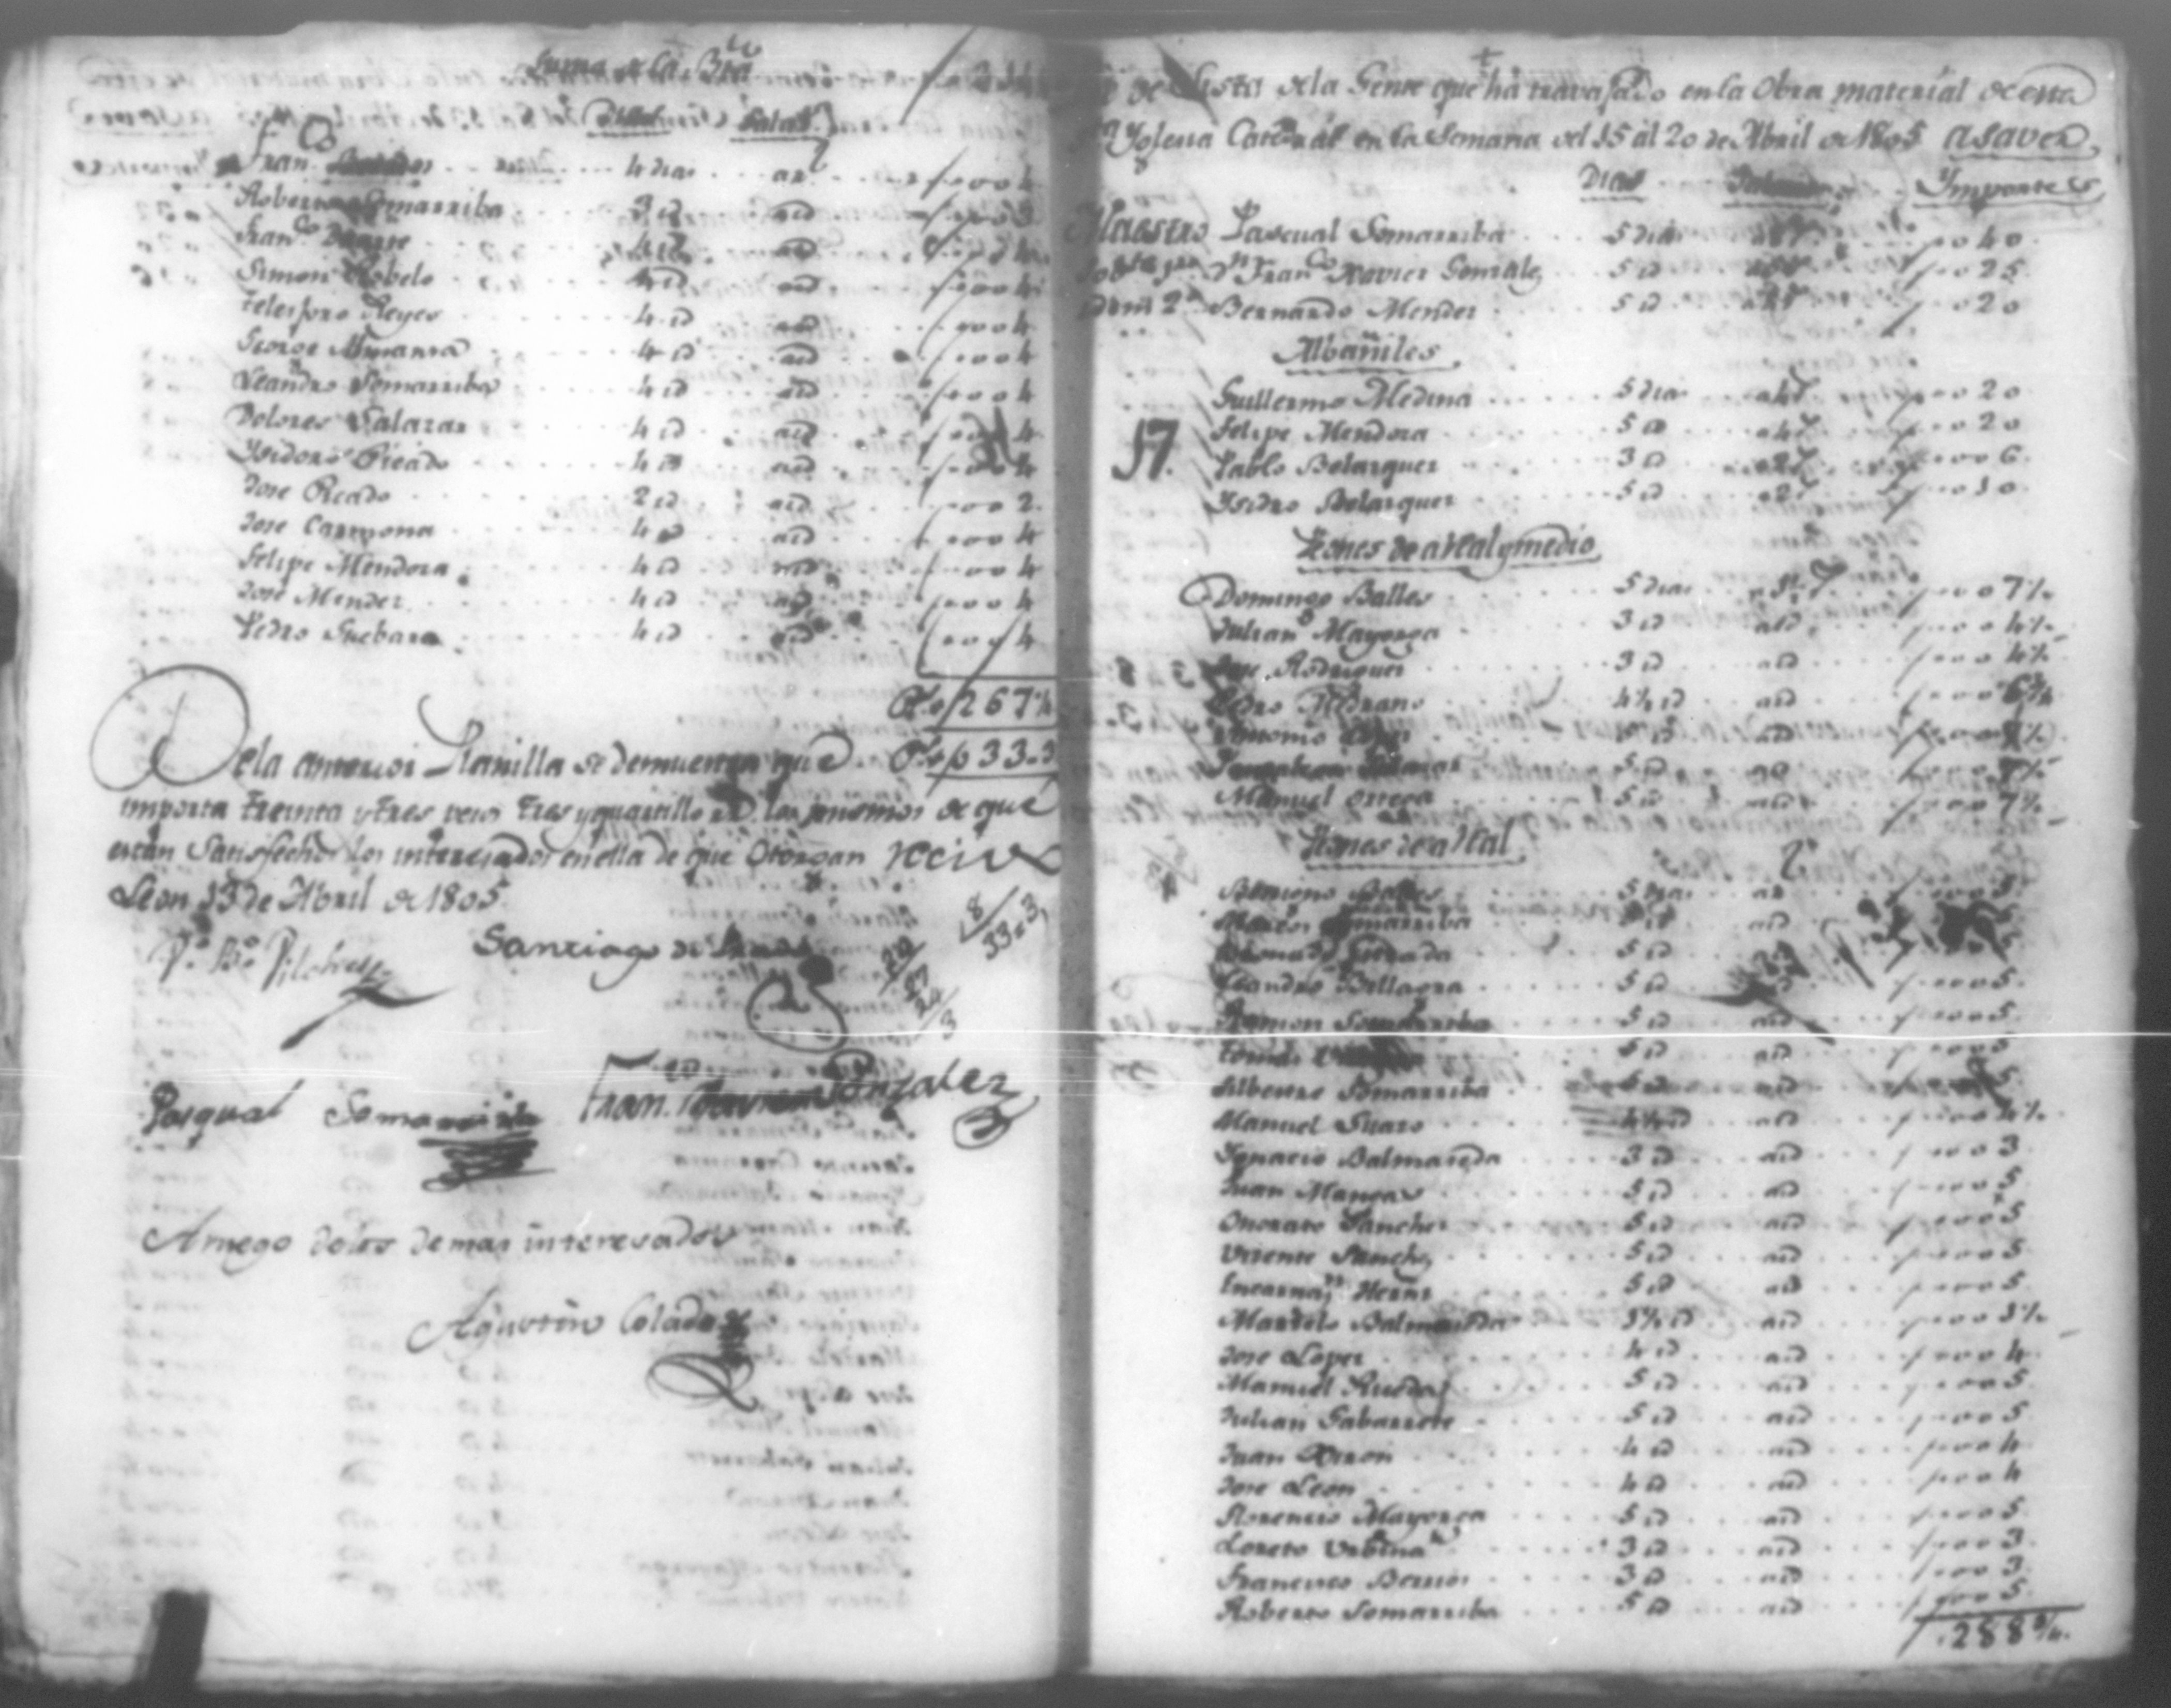 Suma de la Bta
Dias Salar.
Fran.co 4 dias a 1 4
Roberto Somarriba 3 id aid 3
Fran.co Duarte 4 id aid 4
Simon Robelo 4 id aid 4
Telesforo Reyes 4 id aid 4
George Miranda 4 id aid 4
Leandro Somarriba 4 id aid 4
Dolores Salazar 4 id aid 4
Ysidoro Picado 4 id aid 4
Jose Picado 2 id aid 2
Jose Carmona 4 id aid 4
Felipe Mendoza 4 id aid 4
José Mendez 4 id aid 4
Pedro Guebara 4 id aid 4
267 1/4
De la anterior Planilla se demuestra que 33.3
importa treinta y tres pesos tres y quartillo los mismos de que
estan Satisfechos los interesados en ella de que Otorgan recivo
Leon 13 de Abril de 1805
V.o B.o Vilches
Santiago de
8/33.3
Pasqual Somarriba
Fran.co Xavier Gonzalez
A ruego de los demas interesados
Agustin Colado
Lista de la Gente que ha travajado en la Obra material de esta
Yglesia Catedral en la Semana del 15 al 20 de Abril de 1805 a saver
Dias Ymportes
Maestro Pascual Somarriba 5 dias a 8 40
D.n Fran.co Xavier Gonzalez 5 id 25
Idem 2.o Bernardo Mendez 5 id 20
Albañiles
Guillermo Medina 5 dias a 4 20
17.
Felipe Mendoza 5 id a 4 20
Pablo Belasquez 3 id a 2 6
Ysidro Belasquez 5 id a 2 10
Peones de a Real y medio
Domingo Balles 5 dias 7 1/2
Julian Mayorga 3 id aid 4 1/2
Jose Rodriguez 3 id aid 4 1/2
Pedro Medrano 4 1/2 id aid 6 3/4
Antonio 5 id aid 7 1/2
5 id aid 7 1/2
Manuel Ortega 5 id aid 7 1/2
Peones de a Real
Balles 5 dias a 1 5
Somarriba 5 id aid
5 id 5
Leandro Billagra 5 id 5
Ramon Somarriba 5 id aid 5
Tomas 5 id aid 5
Alberto Somarriba 5 id aid 5
Manuel Suazo 4 1/2 id aid 4 1/2
Ygnacio Balmaseda 3 id aid 3
Juan Mangas 5 id aid 5
Onorato Sanchez 5 id aid 5
Vicente Sanchez 5 id aid 5
Encarna.n Hernz 5 id aid 5
Marcelo Balmaseda 3 1/2 id aid 3 1/2
Jose Lopez 4 id aid 4
Manuel Rueda 5 id aid 5
Julian Gabarrete 5 id aid 5
Juan 4 id aid 4
Jose Leon 4 id aid 4
Florencio Mayorga 5 id aid 5
Loreto Urbina 3 id aid 3
Francisco Berrios 3 id aid 3
Roberto Somarriba 5 id aid 5
288 3/4